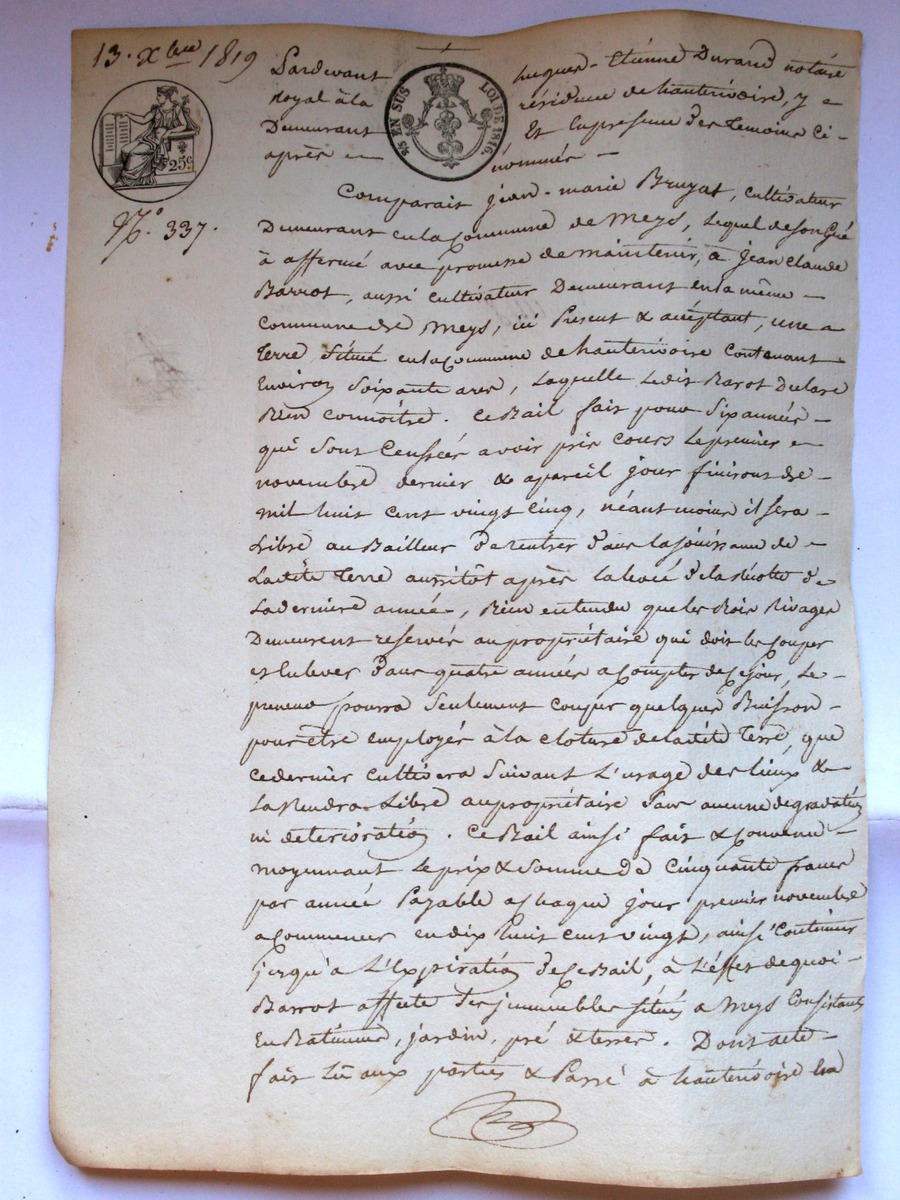 13. Xbre 1819
Pardevant hugues-Etiénne Durand notaire
royal à la résidence de hauterivoire, y
Demeurant Et En presence des temoins Ci-
après nommés
EN SUS
LOI DE 1816.
25c
No. 337.
Comparait jean-marie Bruyat, cultivateur
Demeurant en la Commune de Meys, lequel de son Gré
à affermé avec promesse de maintenir, à jean Claude
Barrot, aussi cultivateur Demeurant en la même
commune de Meys, ici Present & acceptant, une
terre située en la Commune de hauterivoire Contenant
Environ Soixante ares, laquelle Ledit Barot Declare
Bien Connoitre. Ce Bail fait pour Six années
qui Sont Censées avoir pris cours Le premier
novembre dernier & apareil jour finiront de
mil huit cent vingt Cinq, néant moins il sera
Libre au Bailleur De rentrer Dans la jouissance de
Ladite terre aussitôt après la levée De la récolte De
La derniere année, Bien entendu que les Bois Rivages
Demeurent reservés au propriétaire qui doit les Couper
et Enlever Dans quatre années a Compter de Ce jour, Le
preneur pourra Seulement couper quelques Buissons
pour être employés à la cloture de ladite terre, que
ce dernier cultivera Suivant L'usage des lieux &
La Rendra Libre au propriétaire Sans aucune degradation
ni deterioration. Ce Bail ainsi fait & Convenu
moyennant Le prix & Somme De Cinquante francs
par année Payable a Chaque jour premier novembre
a Commencer en dix huit cent vingt, ainsi Continuer
jusqu'a L'Expiration De Ce Bail, à L'effet de quoi
Barrot affecte Ses immeubles situés a Meys Consistants
En Batiments, jardin, pré & terres. Dont acte
fait Lû aux parties & Passé à hauterivoire